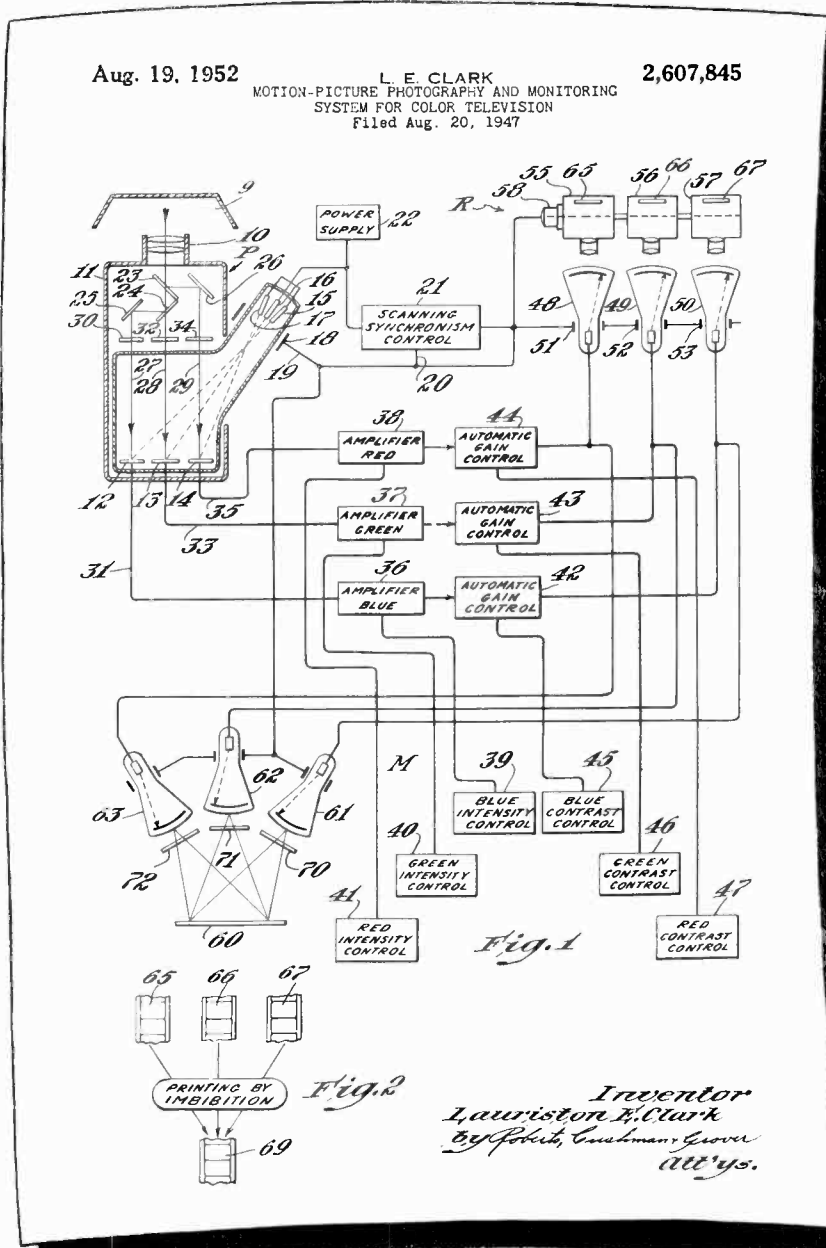 Aug. 19, 1952
L. E. CLARK
2,607,845
MOTION-PICTURE PHOTOGRAPHY AND MONITORING
SYSTEM FOR COLOR TELEVISION
Filed Aug. 20, 1947
9
10
P
11
23
24
25
26
30
32
34
27
28
29
16
15
17
18
19
12
13
14
35
33
31
POWER
SUPPLY
22
21
SCANNING
SYNCHRONISM
CONTROL
20
R
58
55
65
56
66
57
67
48
49
50
51
52
53
38
AMPLIFIER
RED
44
AUTOMATIC
GAIN
CONTROL
37
AMPLIFIER
GREEN
43
AUTOMATIC
GAIN
CONTROL
36
AMPLIFIER
BLUE
42
AUTOMATIC
GAIN
CONTROL
63
62
61
M
72
71
70
60
39
BLUE
INTENSITY
CONTROL
45
BLUE
CONTRAST
CONTROL
40
GREEN
INTENSITY
CONTROL
46
GREEN
CONTRAST
CONTROL
41
RED
INTENSITY
CONTROL
47
RED
CONTRAST
CONTROL
Fig.1
65
66
67
PRINTING BY
IMBIBITION
Fig.2
69
Inventor
Lauriston E. Clark
by Roberts, Cushman & Grover
att'ys.